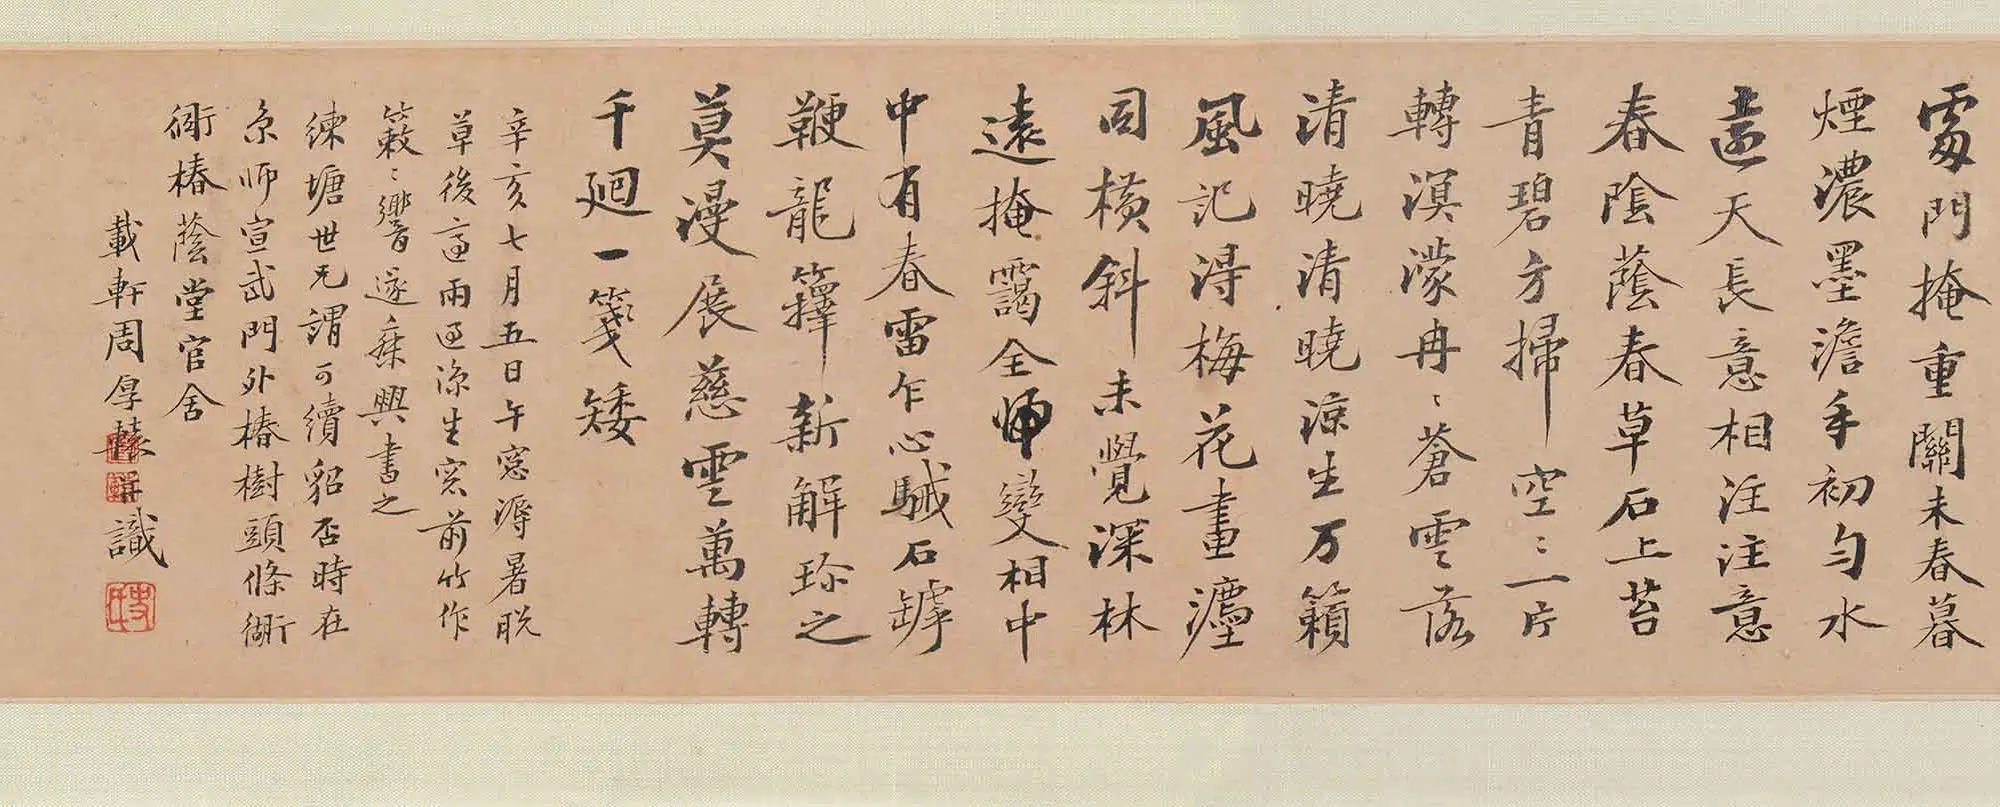 雷門掩重關未春暮
煙濃墨澹手初勻水
遠天長意相注注意
春陰蔭春草石上苔
青碧方掃空〻一片
轉溟濛冉〻蒼雲落
清曉清曉涼生万籟
風記得梅花畫
同橫斜未覺深林
遠掩靄全師變相中
中有春雷乍心駴石罅
鞭龍籜新解珎之
莫漫展慈雲萬轉
千廻一箋矮
辛亥七月五日午窓溽暑脫
草後適雨過涼生窓前竹作
簌〻響遂乘興書之
練塘世兄謂可續貂否時在
京師宣武門外椿樹頭條衚
衕椿蔭堂官舍
載軒周厚轅識